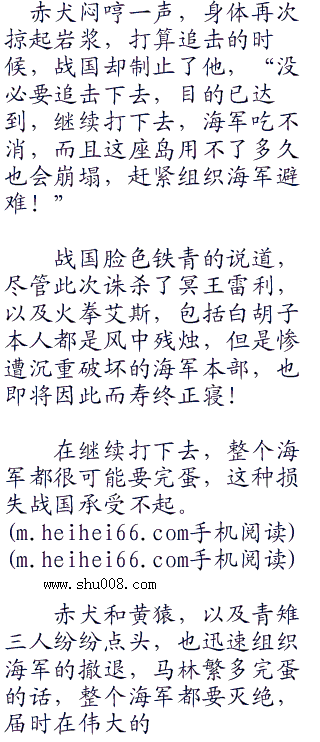 赤犬闷哼一声，身体再次
掠起岩浆，打算追击的时
候，战国却制止了他，“没
必要追击下去，目的已达
到，继续打下去，海军吃不
消，而且这座岛用不了多久
也会崩塌，赶紧组织海军避
难！”
战国脸色铁青的说道，
尽管此次诛杀了冥王雷利，
以及火拳艾斯，包括白胡子
本人都是风中残烛，但是惨
遭沉重破坏的海军本部，也
即将因此而寿终正寝！
在继续打下去，整个海
军都很可能要完蛋，这种损
失战国承受不起。
(m.heihei66.com手机阅读)
(m.heihei66.com手机阅读)
www.shu008.com
赤犬和黄猿，以及青雉
三人纷纷点头，也迅速组织
海军的撤退，马林繁多完蛋
的话，整个海军都要灭绝，
届时在伟大的